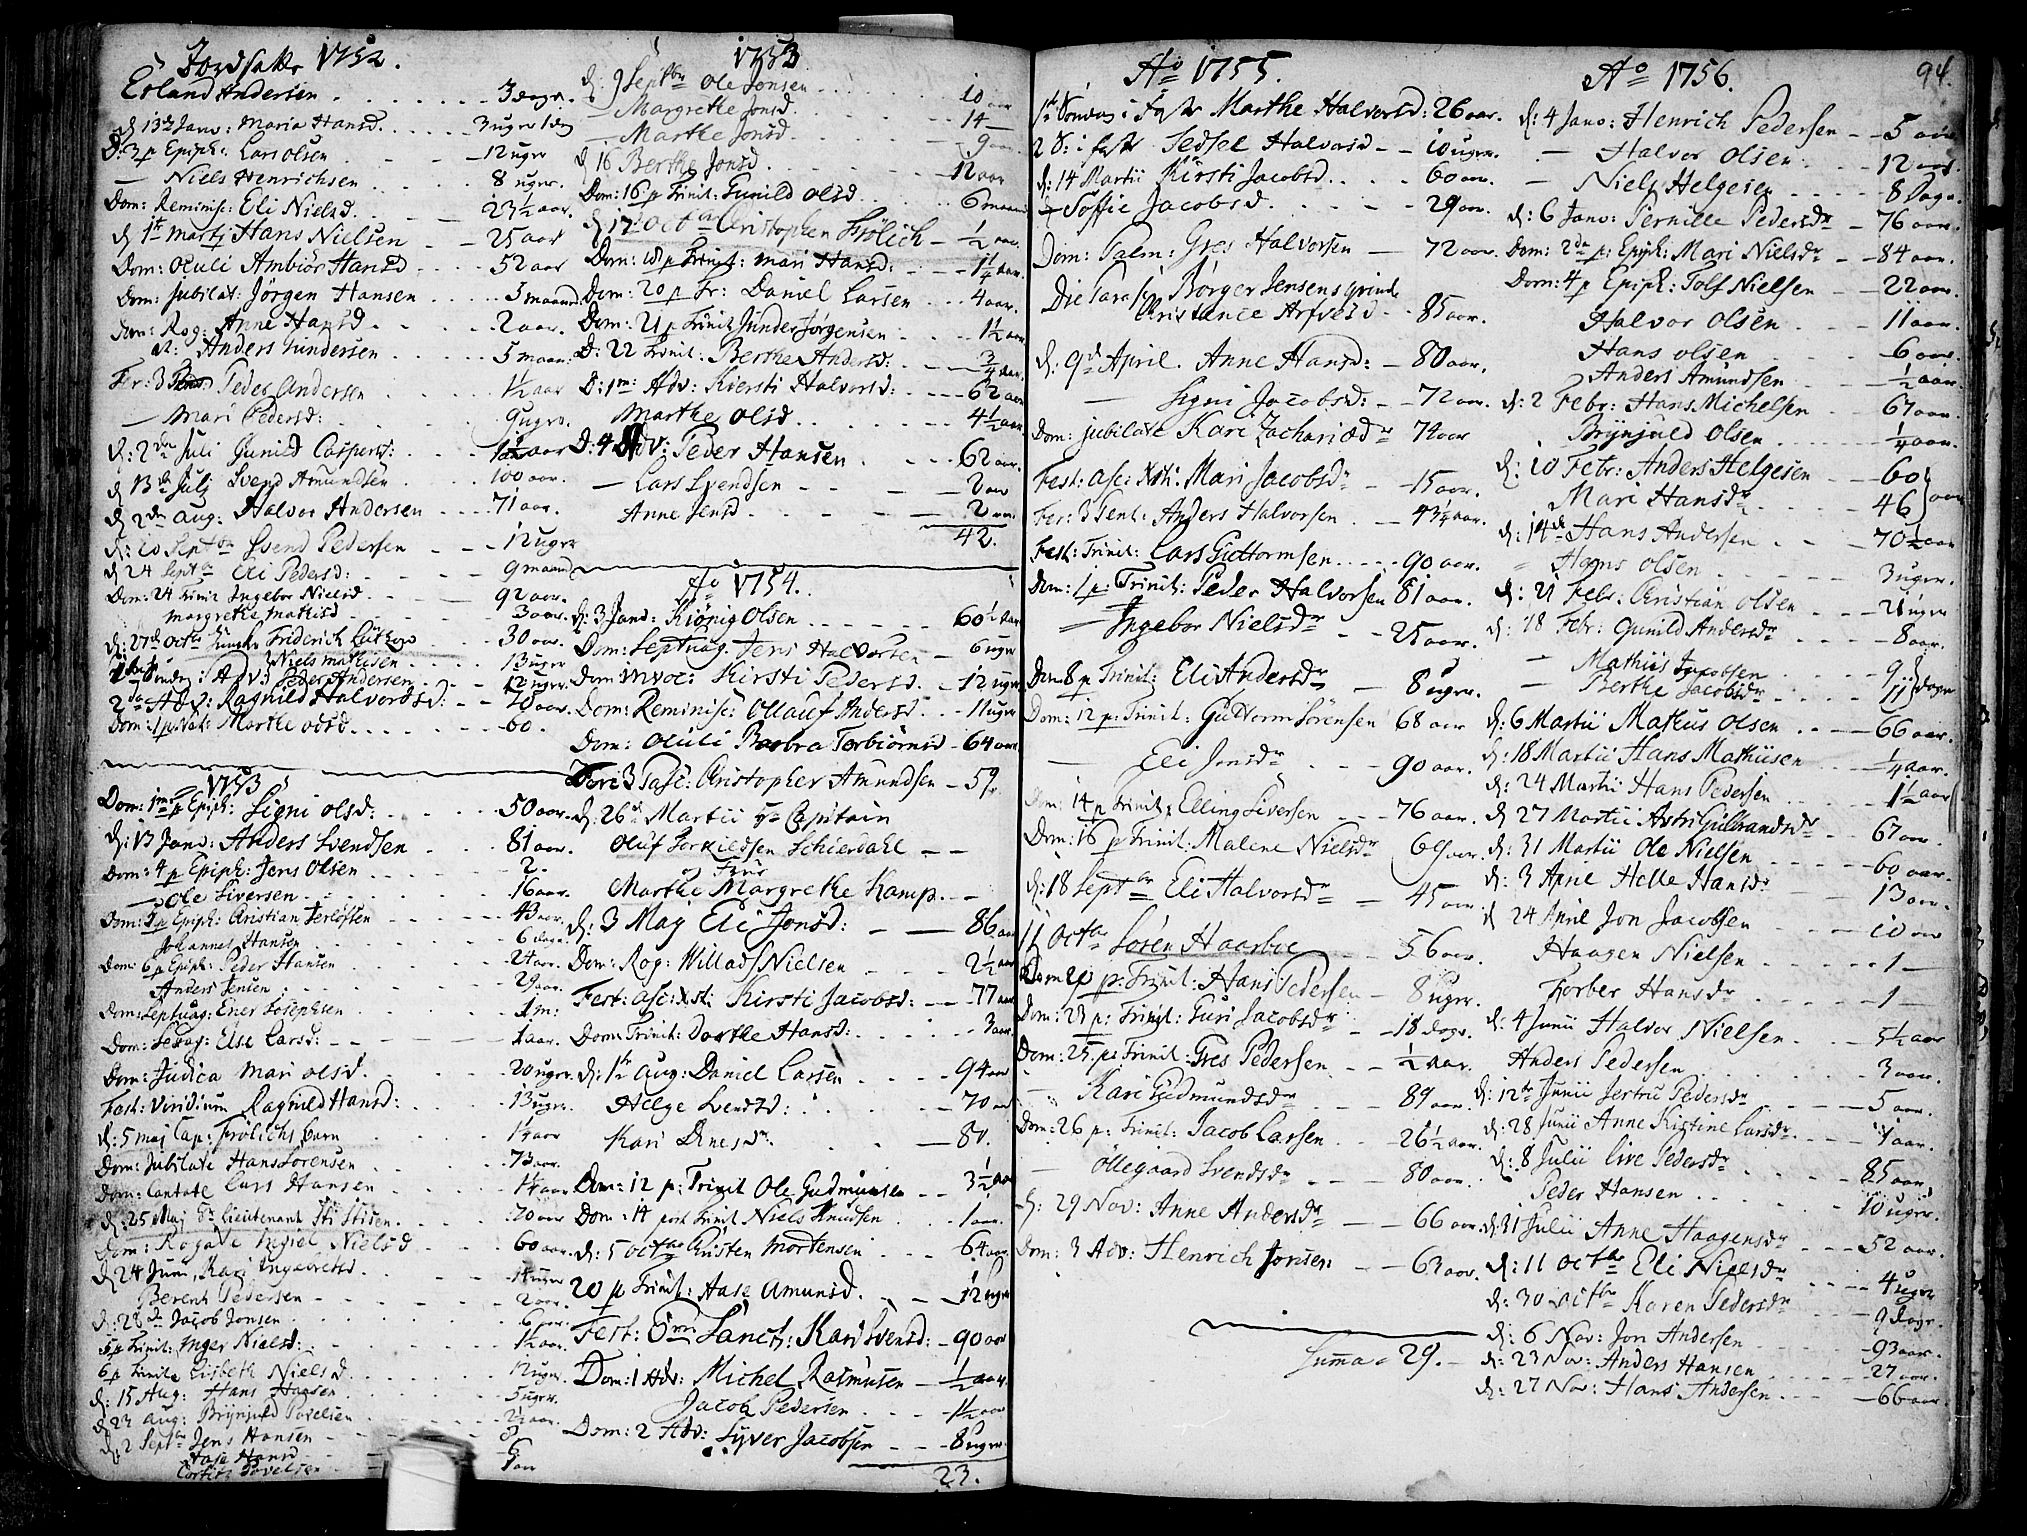 Jordsatte 1752.
Erland Andersen 3 dage.
d 13de Janv: Maria Hansd. 3 uger 1 dag
D: 3 p Epiph: Lars Olsen 12 uger
— Niels Henrichsen 8 uger.
Dom: Reminisc: Eli Nielsd. 23½ aar.
d 1ste Martj Hans Nielsen 25 aar
Dom: Oculi Ambiør Hansd 52 aar
Dom: Jubilat: Jørgen Hansen 3 maand
Dom: Rog: Anne Hansd. 2 aar.
Anders Gundersen 5 maan:
Fer: 3 Peder Andersen 1½ aar
— Mari Pedersd: 9 uger.
d: 2den Juli Gunild Caspersd: aar
d 13de Julj Svend Amundsen 100 aar.
d 2den Aug: Halvor Andersen 71 aar.
d: 20 Septbr Svend Pedersen 12 uger
d 24 Septbr Eli Pedersd: 9 maand
Dom: 24 Trinit Ingebor Nielsd 92 aar.
Margrethe Mathisd 3 aar.
d: 27de Octbr Friderich Lützow 30 aar.
Niels Mathisen 13 uger
Adv: Peder Andersen 12 uger.
2den Adv: Ragnild Halvorsd: 70 aar.
Dom: 1 p Nat: Marthe Olsd. 60.
1753
Dom: 1m p Epiph: Signi Olsd: 50 aar.
d: 13 Janv: Anders Svendsen 81 aar.
Dom: 4 p Epiph: Jens Olsen 2.
— Ole Siversen 16 aar.
Dom: 5 p Epiph: Christian 43 aar.
Johannes Hansen 6 dage.
Dom: 6 p Epiph: Peder Hansen 24 aar.
Anders Jensen 29 aar.
Dom: Septuag: Ener Josephsen 1 m:
Dom: Sexag: Else Larsd: 1 aar.
Dom: Judica Mari Olsd. 20 uger.
Fest: Viridium Ragnild Hansd: 13 uger.
d: 5 Maj Cap: Frölichs barn aar
Dom: Jubilate Hans Sorensen 73 aar.
Dom: Cantate Lars Hansen aar
d: 25 Maj Sr Lieutenant Sti Stisen. 70 aar
Dom: Rogate Nielsd 60 aar.
d 24 Juni, Kari Ingebretsd. uger
Berent Pedersen 2 aar.
d: 28de Jacob Jonsen 6 aar.
5 p Trinit: Inger Nielsd: 1½ aar.
6 p Trinit Lisbeth Nielsd 12 uger.
d: 15 Aug: Hans Hansen 5 uger.
d 23 Aug: Brÿnjuld Povelsen 2½ aar.
d: 2 Septbr Jens Hansen
Aase Hansd
Povelsen aar
1753
d: 9 Septbr Ole Jonsen 10 aar
— Margrethe Jonsd. 14 —
— Marthe Jonsd 9 aar.
d 16 Berthe Jonsd 12 aar
Dom: 16 p Trinit: Gunild Olsd. 6 maand
d 17 Octbr Christopher Frölich ½ aar.
Dom: 18 p Trinit: Mari Hansd: 1¼ aar.
Dom: 20 p Tr: Daniel Larsen 4 aar.
Dom: 21 p Trinit Gunder Jørgensen 1½ aar
D: 22 Trinit: Berthe Andersd: ¾ aar.
D: 1m: Adv: Kiersti Halvorsd: 62 aar
Marthe Olsd. 4½ aar
D: 4 Adv: Peder Hansen 62 aar.
— Lars Svendsen 2 aar
Anne Jensd. 2 aar.
42.
Ao 1754.
d: 3 Janv: Kiönig Olsen 60½ aar
Dom: Septuag. Jens Halvorsen 6 uger
Dom Invoc: Kirsti Pedersd. 12 uger
Dom: Reminisc: Ollauf Andersd 11 uger
Dom: Oculi Barbra Torbiörnsd 64 aar.
Feri: 3 Pasc: Christopher Amundsen 59.
d: 26de Martii Hr Capitain
Oluf Terkildsen Schierdahl —
og Frue
Marthe Margrethe Kamp.
d: 3 Maj Eli Jonsd: 86 aar
Dom: Rog: Willads Nielsen 2½ aar
Fest: Asc: Xsti: Kirsti Jacobsd: 77 aar
Dom: Trinit: Dorthe Hansd: 3 aar.
d: 1ste Aug: Daniel Larsen 94 aar
Helge Svendsd: 70 aar
Kari Enesdr. 81.
Dom: 12 p: Trinit Ole Gudmunsen 3½ aar
Dom: 14 post Trinit Niels Knudsen 1 aar.
d: 5 Octbr Christen Mortensen 64 aar.
20 p Trinit: Aase Amunsd. 12 uger
Fest: Omn: Sanct: Kari Svensd: 90 aar
Dom: 1 Adv: Michel Rasmusen ½ aar.
Jacob Pedersen 1½ aar
Dom: 2 Adv: Syver Jacobsen 8 uger
23.
Ao 1755.
1ste Söndag i Faste Marthe Halvorsd: 26 aar.
2 S: i faste Sedsel Halvorsd 10 uger.
d: 14 Martii Kirsti Jacobsd. 60 aar.
d — Soffie Jacobsd. 29 aar.
Dom: Palm: Gres Halvorsen 72 aar.
Die Parasc Börger Jensens qvinde
Christance Arfvesd 85 aar.
d: 9de April. Anne Hansd: 80 aar.
— Signi Jacobsd: 72 aar.
Dom: Jubilate Kari Zachariædr 74 aar
Fest: Asc: Xsti: Mari Jacobsdr 15 aar.
Fer: 3 Pent: Anders Halvorsen 43¼ aar.
Fest: Trinit: Lars Guttormsen 90 aar.
Dom: 1 p: Trinit: Peder Halvorsen 81 aar.
— Ingebor Nielsdr 25 aar.
Dom 8 p Trinit: Eli Andersdr 8 uger.
Dom: 12 p: Trinit: Guttorm Sörensen 68 aar
— Eli Jonsdr 90 aar.
Dom: 14 p Trinit: Elling Siversen 76 aar.
Dom: 16 p Trinit: Malene Nielsdr 69 aar.
d: 18 Septbr Eli Halvorsdr 45 aar
11 Octbr Sören Haarboe 56 aar.
Dom 20 p: Trinit: Hans Pedersen 8 uger.
Dom: 23 p: Trinit: Guri Jacobsdr 18 dage.
Dom: 25 p: Trinit: Gres Pedersen ½ aar.
— Kari Gudmundsdr 89 aar.
Dom: 26 p: Trinit: Jacob Larsen 26½ aar.
— Öllegaard Svendsdr 80 aar.
d: 29 Nov: Anne Andersdr 66 aar.
Dom: 3 Adv: Henrich Jonsen: 63 aar.
Summa 29.
Ao 1756.
94.
d: 4 Janv: Henrich Pedersen 5 aar
— Halvor Olsen 12 aar.
— Niels Helgesen 8 Dage.
d: 6 Janv: Pernille Pedersdr 76 aar.
Dom: 2da p: Epiph: Mari Nielsdr 84 aar.
Dom: 4 p Epiph: Tolf Nielsen 22 aar.
Halvor Olsen 11 aar.
Hans Olsen 6 aar.
Anders Amundsen ½ aar.
d: 2 Febr: Hans Michelsen 67 aar.
Brÿnjuld Olsen ¼ aar.
d: 10 Febr: Anders Helgesen 60
Mari Hansdr 46 } aar
d: 14de Hans Andersen 70½ aar
— Hans Olsen 3 uger.
d: 21 Febr: Christian Olsen 21 uger
d: 28 Febr: Gunild Andersdr 8 aar.
— Mathiis Jacobsen 9
— Berthe Jacobsdr 11 } dage
d: 6 Martii Mathis Olsen 66 aar.
d: 18 Martii Hans Mathiisen ¼ aar.
d: 24 Martii Hans Pedersen 1½ aar
d 27 Martii Astri Gulbrandsdr 67 aar.
d: 31 Martii Ole Nielsen 60 aar.
d: 3 April Helle Hansdr 13 aar.
d 24 April Jon Jacobsen 10 aar
Haagen Nielsen 1 —
Torber Hansdr 1 —
d: 4 Junii Halvor Nielsen 5½ aar
Anders Pedersen 3 aar.
d: 12te Junii Jertru Pedersdr 5 aar.
d: 28 Junii Anne Kistine Larsdr. aar.
d: 8 Julii Live Pedersdr 85 aar.
Peder Hansen 10 uger.
d: 31 Julii Anne Haagensdr 52 aar.
d: 11 Octbr Eli Nielsdr 4 uger
d: 30 Octbr Karen Pedersdr 9 dage.
d: 6 Nov: Jon Andersen 93 aar.
d: 23 Nov: Anders Hansen 27 aar.
d: 27 Nov: Hans Andersen 66 aar.